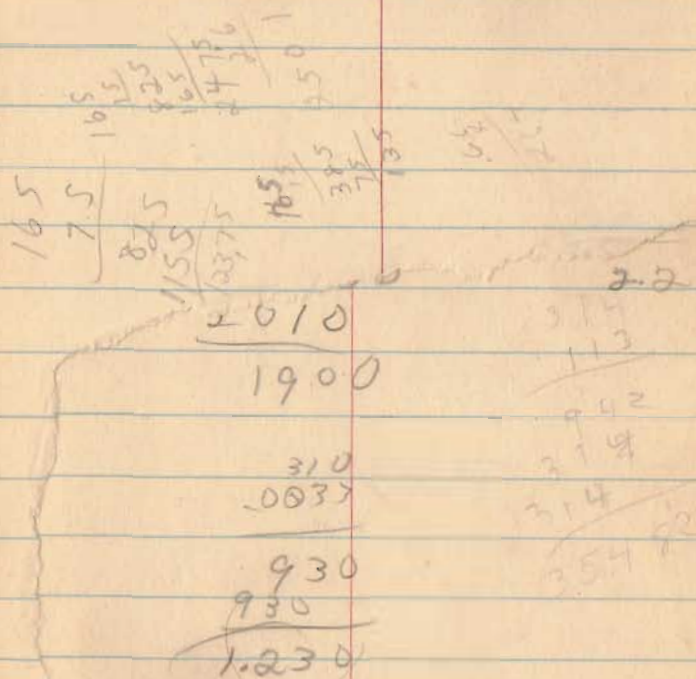 165
7.5
825
1155
123,75
165
15
825
165
2475
2501
165
385
75
135
2.2
2010
1900
310
.0033
930
930
1.230
314
113
942
314
314
354 82